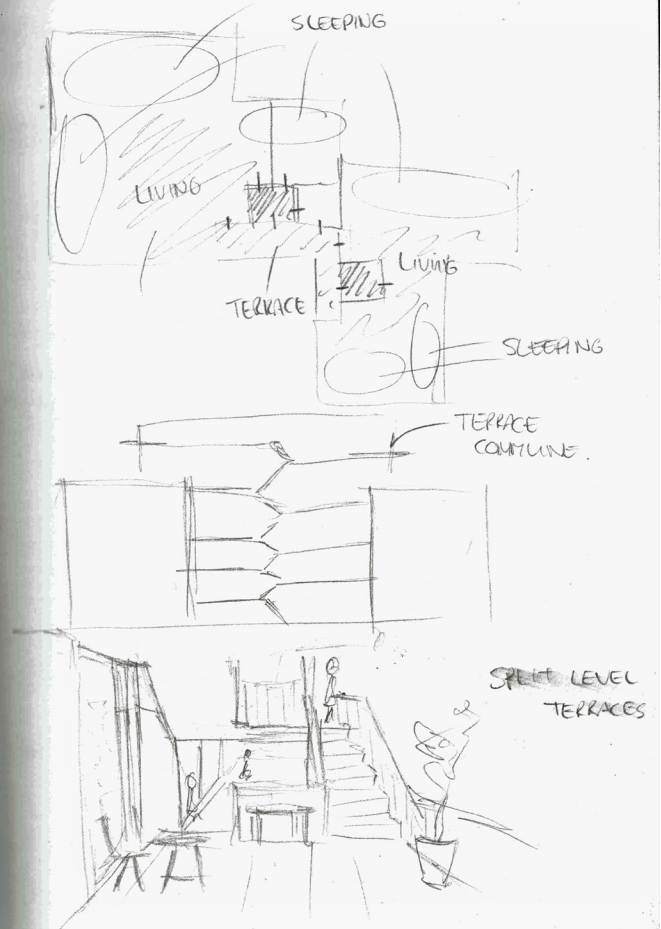 SLEEPING
LIVING
LIVING
TERRACE
SLEEPING
TERRACE
COMMUNE.
SPLIT LEVEL
TERRACES